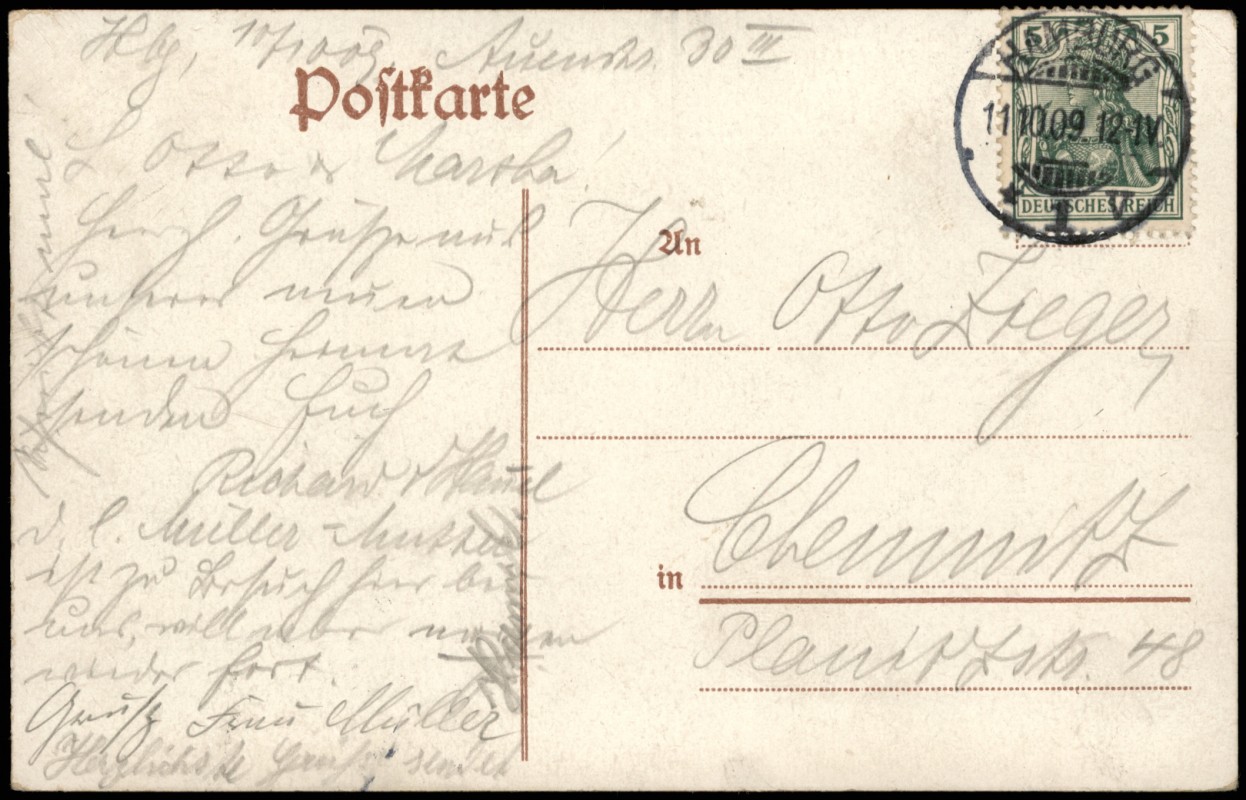 Hbg, 10/10 09, Auenstr. 30 III
Postkarte
L Otto u Martha!
Herzl. Grüße aus
unserer neuen
schönen Heimat
senden Euch
Richard &
d. l. Müller-Mutter
ist zu Besuch hier bei
uns, will aber morgen
wieder fort.
Gruß Frau Müller
Herzlichste Grüße sendet
5 5
DEUTSCHES REICH
HAMBURG
11.10.09 12-1V
* 1 V
An
Herrn Otto Zieger,
in Chemnitz
Planitzstr. 48